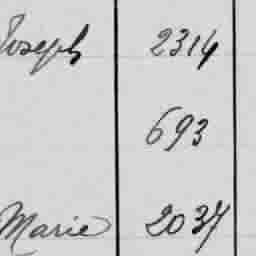 Joseph 2314
693
Marie 2037